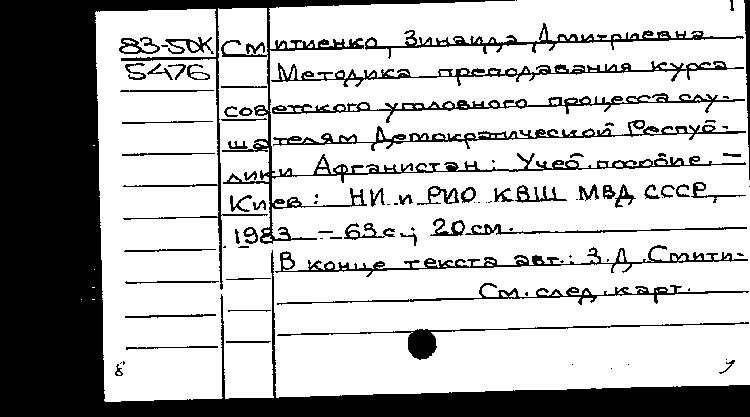 1
83-5DK Смитиенко, Зинаида Дмитриевна.
5476 Методика преподавания курса
советского уголовного процесса слу-
шателям Демократической Респуб-
лики Афганистан: Учеб. пособие. –
Киев: НИ и РИО КВШ МВД СССР,
1983. – 63 с.; 20 см.
В конце текста авт.: З.Д. Смити-
См. след. карт.
8